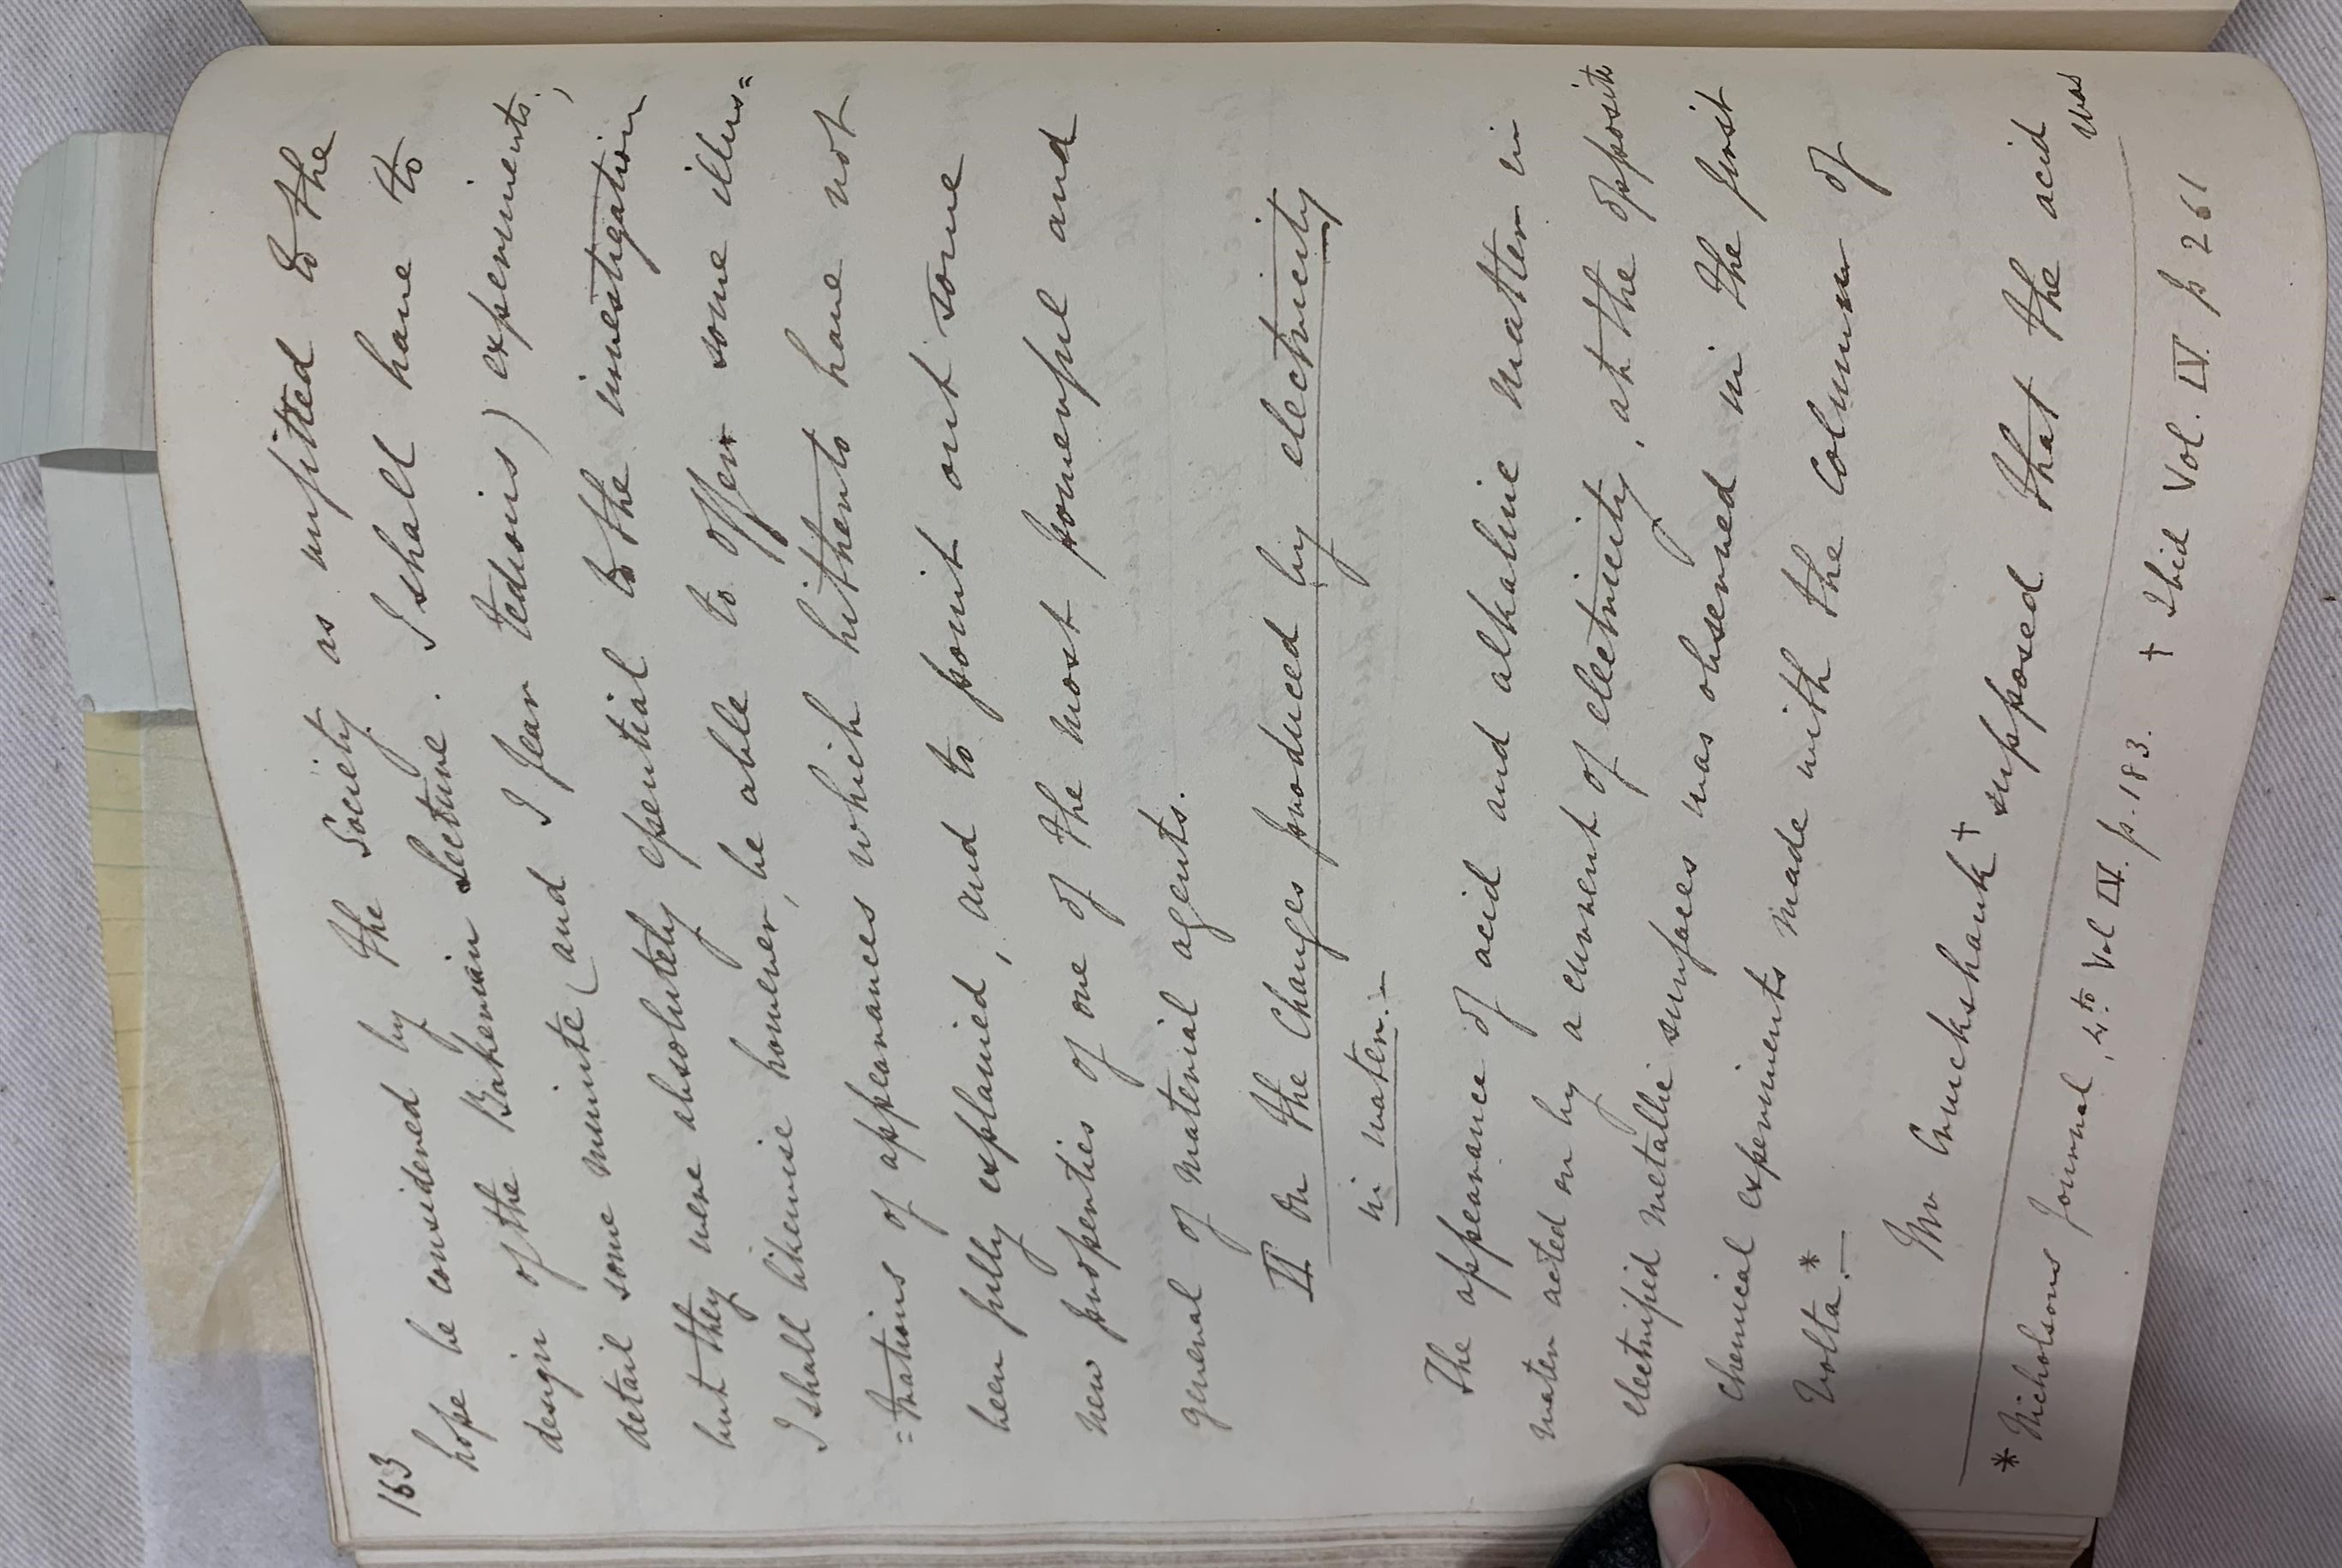 163
hope be considered by the Society as unfitted to the
design of the Bakerian Lecture. I shall have to
detail some minute (and I fear tedious) experiments;
but they were absolutely essential to the investigation
I shall likewise however, be able to offer some illus=
=trations of appearances which hitherto have not
been fully explained, and to point out some
new properties of one of the most powerful and
general of material agents.
II On the Changes produced by electricity
in water.—
The appearance of acid and alkaline matter in
water acted on by a current of electricity, at the opposite
electrified metallic surfaces was observed in the first
chemical experiments made with the Column of
Volta.* —
Mr Cruickshank † supposed that the acid
was
* Nicholsons Journal, 4.to Vol IV. p. 183. † Ibid Vol. IV p 261